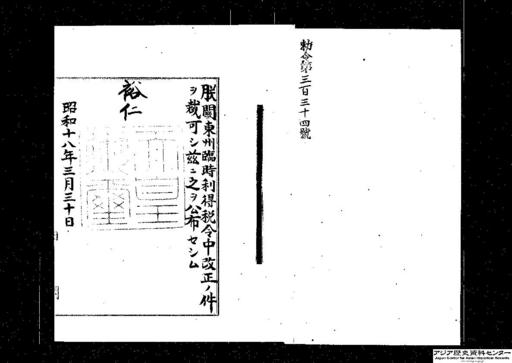 勅令第三百三十四號
朕關東州臨時利得税令中改正ノ件
ヲ裁可シ茲ニ之ヲ公布セシム
裕仁
天皇御璽
昭和十八年三月三十日
アジア歴史資料センター
Japan Center for Asian Historical Records